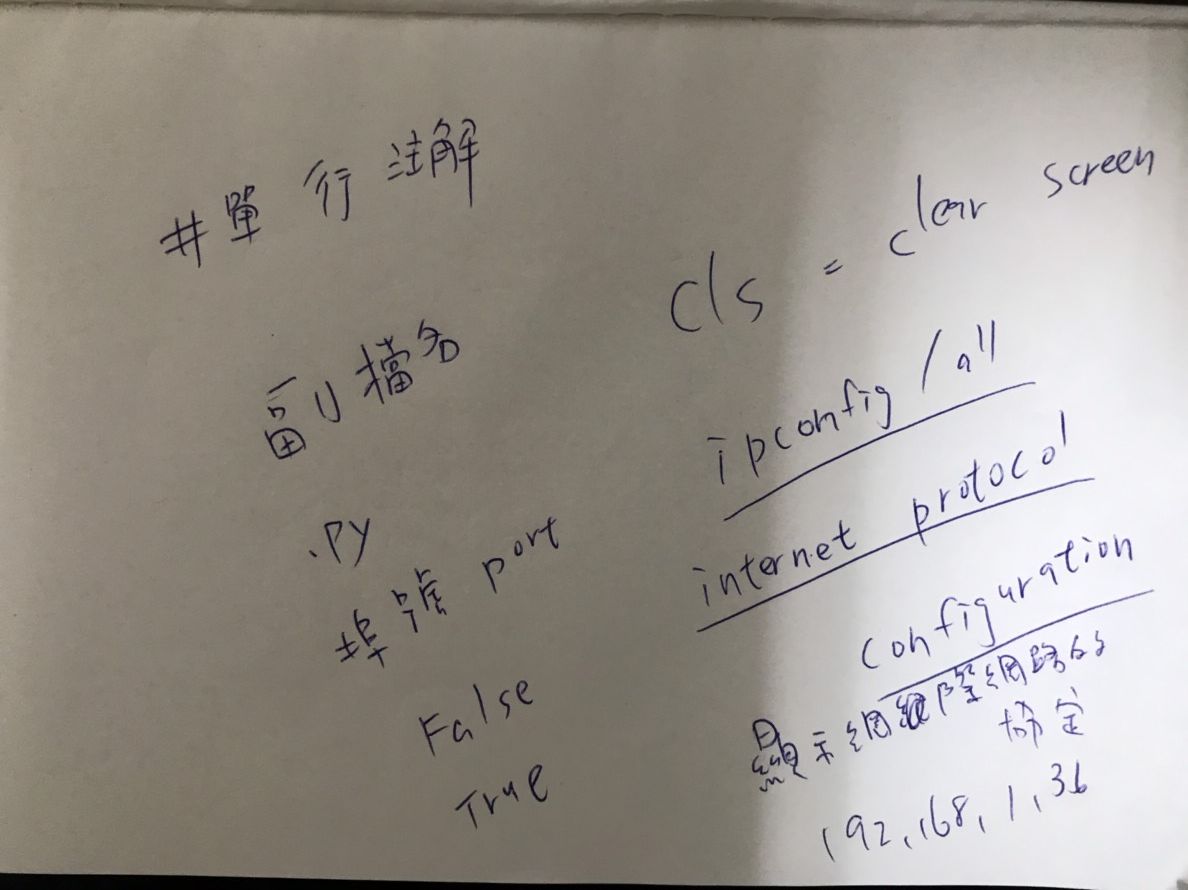 #單行 注解
副檔名
.py
埠號 port
False
True
cls = clear screen
ipconfig /all
internet protocol
configuration
顯示網際網路的
協定
192.168.1.36